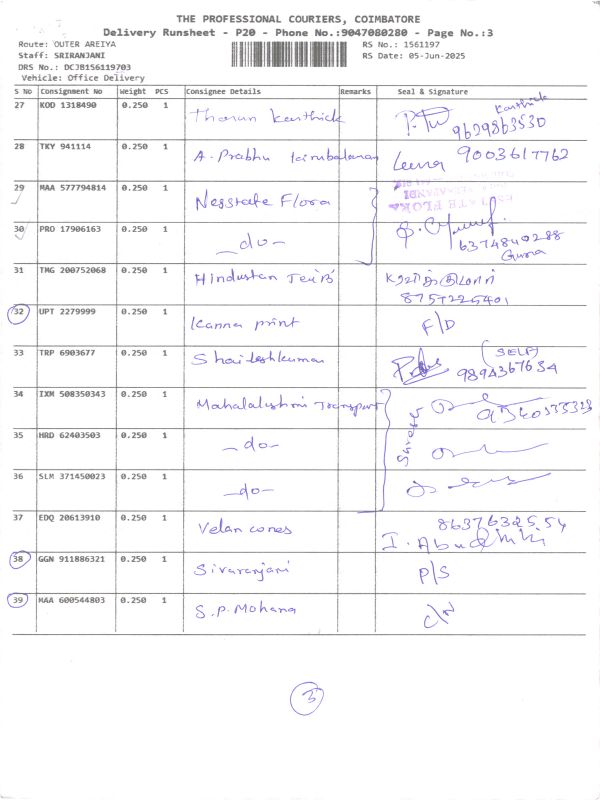 THE PROFESSIONAL COURIERS, COIMBATORE
Delivery Runsheet - P20 - Phone No.:9047080280 - Page No.:3
Route: OUTER AREIYA RS No.: 1561197
Staff: SRIRANJANI RS Date: 05-Jun-2025
DRS No.: DCJB156119703
Vehicle: Office Delivery
S No Consignment No Weight PCS Consignee Details Remarks Seal & Signature
27 KOD 1318490 0.250 1 Tharun Karthick Karthick 9629863530
28 TKY 941114 0.250 1 A. Prabhu Leena 9003617762
29 MAA 577794814 0.250 1 Nesstate Flora
30 PRO 17906163 0.250 1 —do— 6374840288
Guna
31 TMG 200752068 0.250 1 Hindustan
8757225401
32 UPT 2279999 0.250 1 Kanna print F/D
33 TRP 6903677 0.250 1 Shaileshkumar (SELF)
9894367634
34 IXM 508350343 0.250 1 Mahalakshmi Transport
35 HRD 62403503 0.250 1 —do—
36 SLM 371450023 0.250 1 —do—
37 EDQ 20613910 0.250 1 Velan cones 8637632554
38 GGN 911886321 0.250 1 Sivaranjani P/S
39 MAA 600544803 0.250 1 S.P. Mohana
3